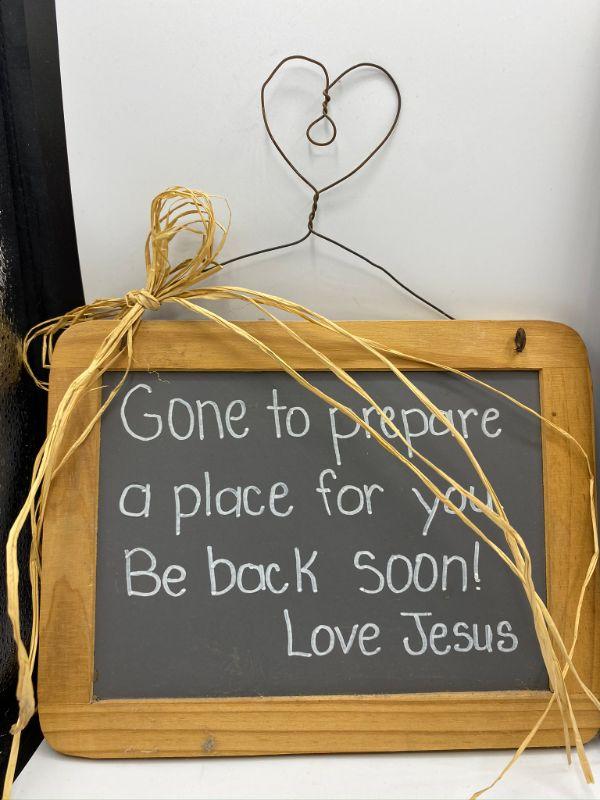 Gone to prepare
a place for you
Be back soon!
Love Jesus